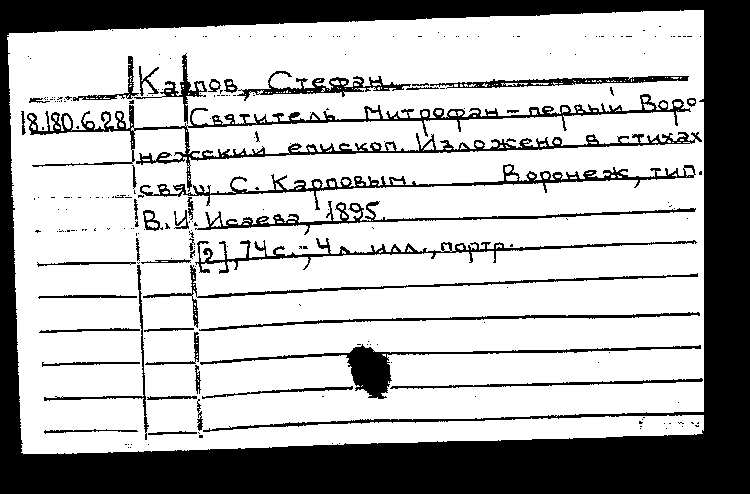 Карпов, Стефан.
18.180.6.28 Святитель Митрофан - первый Воро-
нежский епископ. Изложено в стихах
свящ. С. Карповым. Воронеж, тип.
В.И. Исаева, 1895.
[2], 74 с.; 4 л. илл., портр.